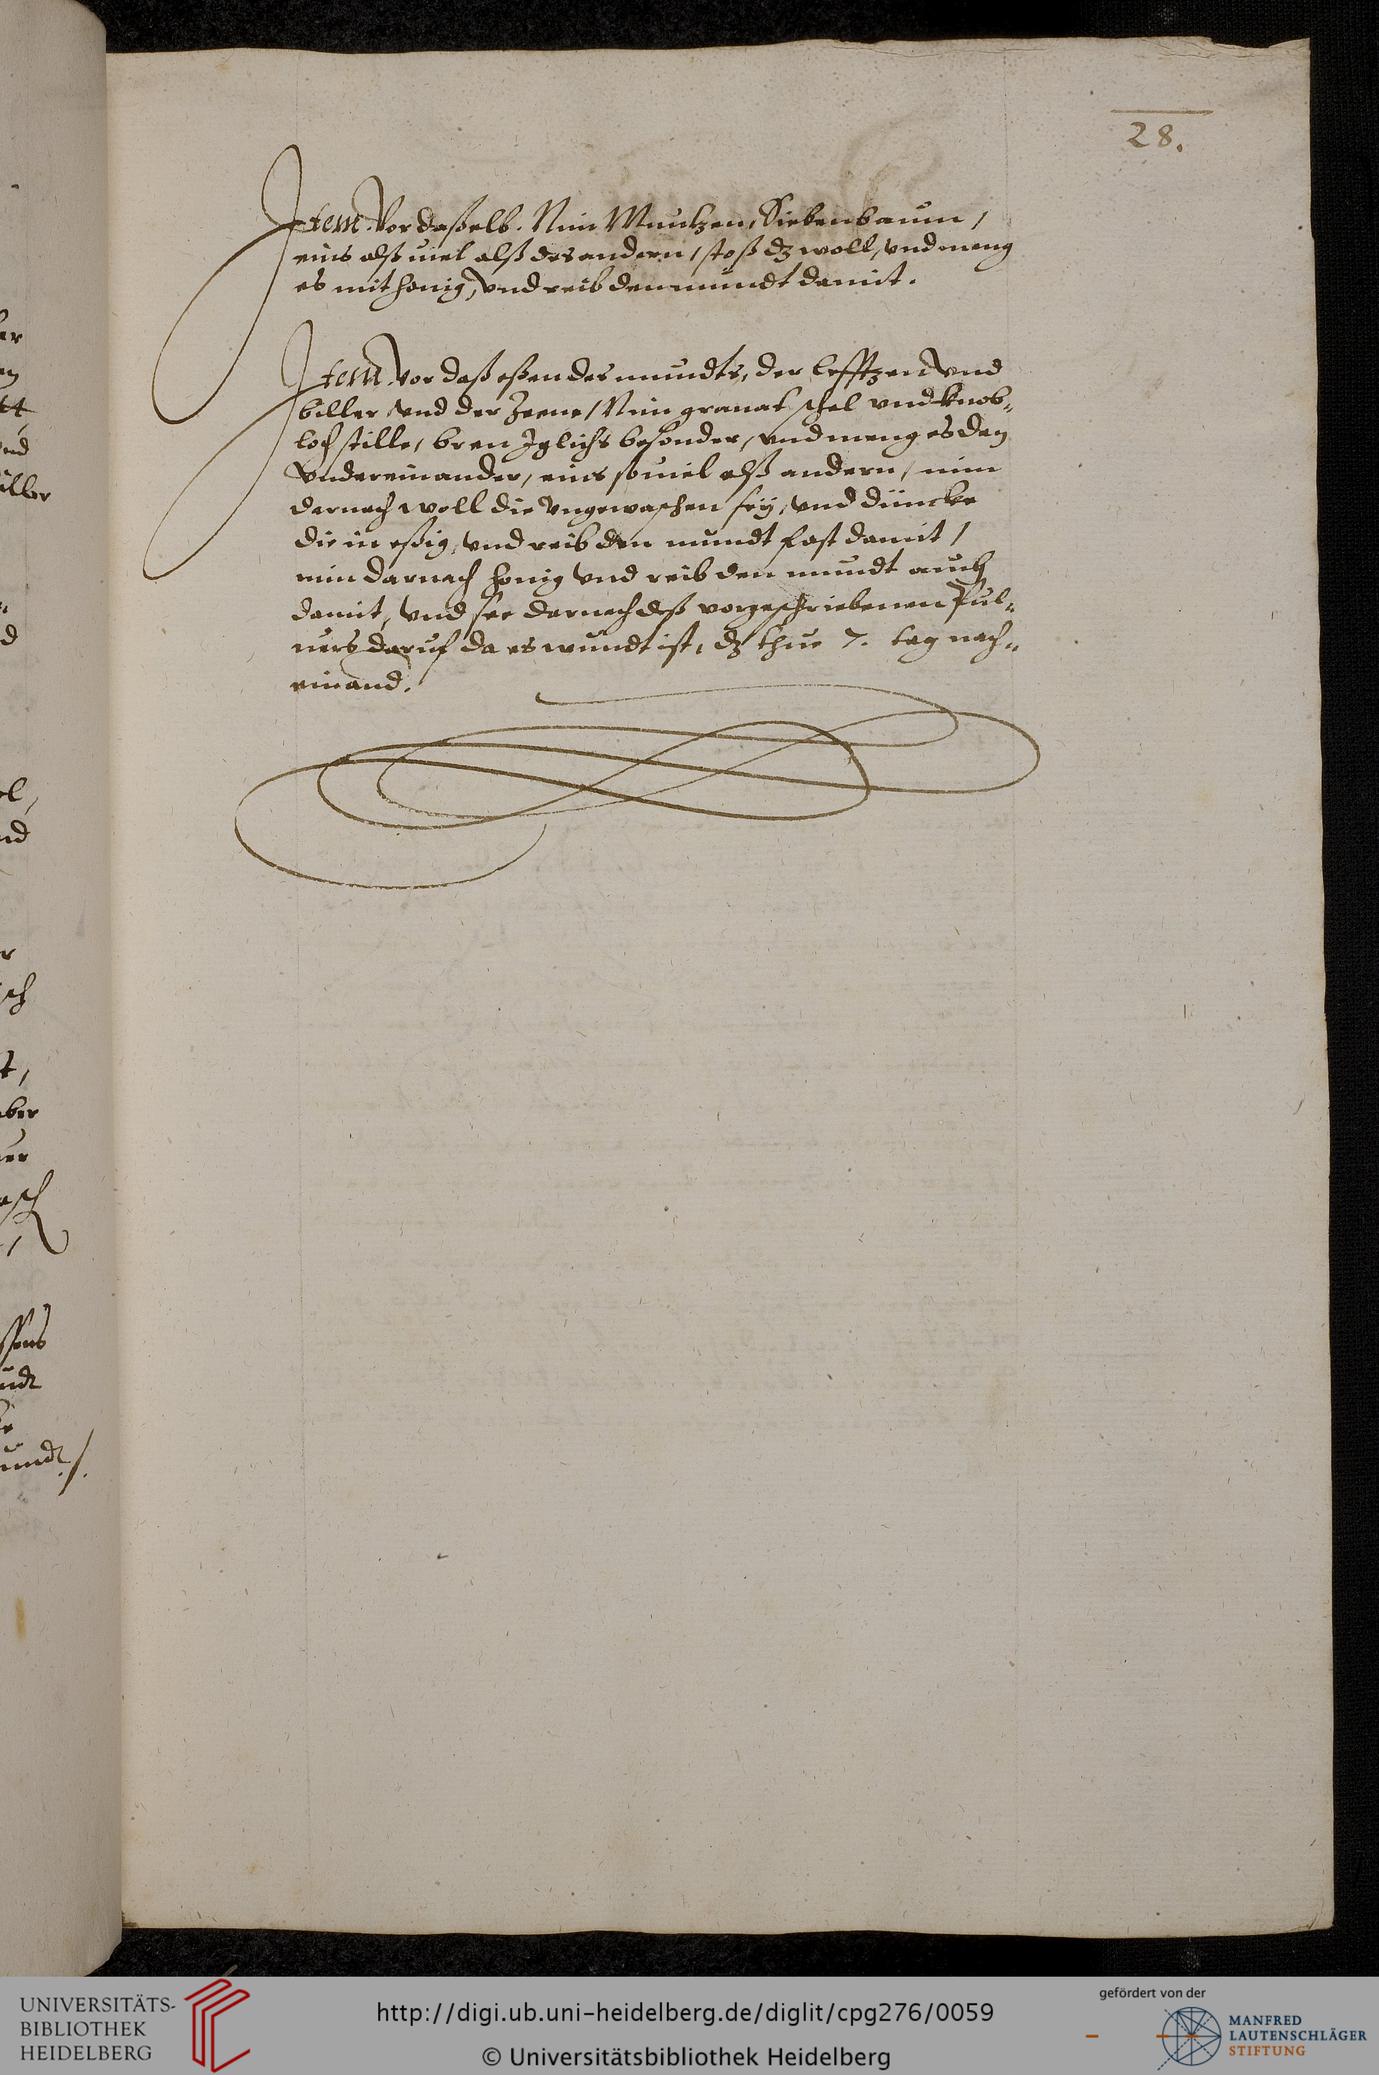 28.
Item. Vor daßelb. Nim Muntzen, Siebenbaum,
eins alß uiel alß des andern, stoß dz woll, vnd meng
es mit honig, vnd reib den mundt damit.
Item. vor daß eßen des mundts, der lefftzen vnd
biller vnd der Zeene, Nim granat schel vnd knob-
loch stille, bren Jglichs besonder, vnd meng es den
vndereinander, eins souiel alß andern, nim
darnach woll die vngewaschen sey, vnd düncke
die in eßig, vnd reib den mundt fast damit,
nim darnach honig vnd reib den mundt auch
damit, vnd see darnach deß vorgeschriebenen Pul-
uers daruf da es wundt ist, dz thue 7. tag nach-
einand.
UNIVERSITÄTS-
BIBLIOTHEK
HEIDELBERG
http://digi.ub.uni-heidelberg.de/diglit/cpg276/0059
© Universitätsbibliothek Heidelberg
gefördert von der
MANFRED
LAUTENSCHLÄGER
STIFTUNG